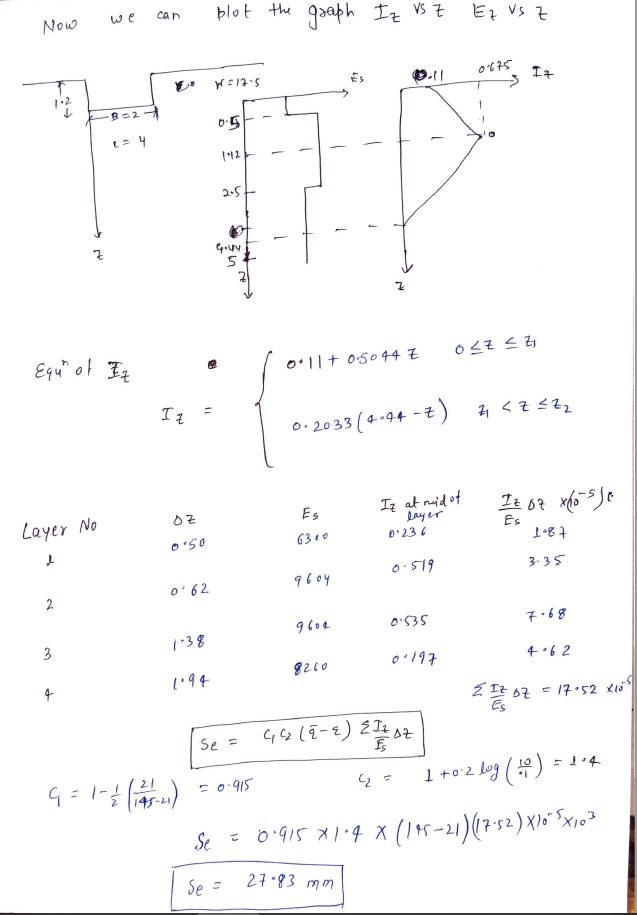 Now we can plot the graph Iz vs z Ez vs z
1.2
B=2
L = 4
z
W = 17.5
Es
0.5
1.12
2.5
4.44
5
z
0.11
0.675
Iz
z
Equⁿ of Iz
Iz =
0.11 + 0.5044 z 0 ≤ z ≤ z₁
0.2033 (4.44 - z) z₁ < z ≤ z₂
Layer No Δz Es Iz at mid of layer Iz/Es Δz x10⁻⁵
1 0.50 6300 0.236 1.87
2 0.62 9604 0.519 3.35
3 1.38 9604 0.535 7.68
4 1.94 8260 0.197 4.62
Σ Iz/Es Δz = 17.52 x10⁻⁵
Se = C₁ C₂ (q̄-q) Σ Iz/Es Δz
C₁ = 1 - 1/2 (21/145-21) = 0.915
C₂ = 1 + 0.2 log (10/.1) = 1.4
Se = 0.915 x 1.4 x (145-21)(17.52) x 10⁻⁵ x 10³
Se = 27.83 mm